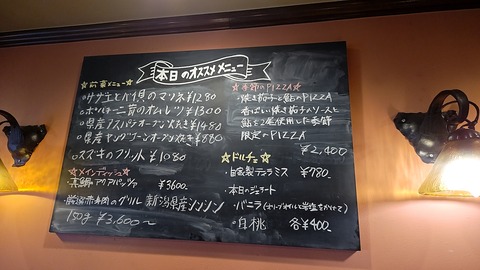 本日のオススメメニュー
☆前菜メニュー☆
・サザエとバイ貝のマリネ¥1280
・ポルチーニ茸のオムレツ¥1300
・県産アスパラオーブン焼き¥1480
・県産ヤングコーンオーブン焼き¥880
・スズキのフリット ¥1080
☆メインディッシュ☆
・黒鯛アクアパッツァ ¥3600
150g ¥3,600〜
☆季節のPIZZA☆
・焼き茄子と鮎のPIZZA
香ばしい焼き茄子のソースと
鮎を2尾使用した季節
限定のPIZZA
¥2,400
☆ドルチェ☆
・自家製ティラミス ¥780
・本日のジェラート
・バニラ(オリーブオイルと岩塩をかけて)
・白桃 各¥400